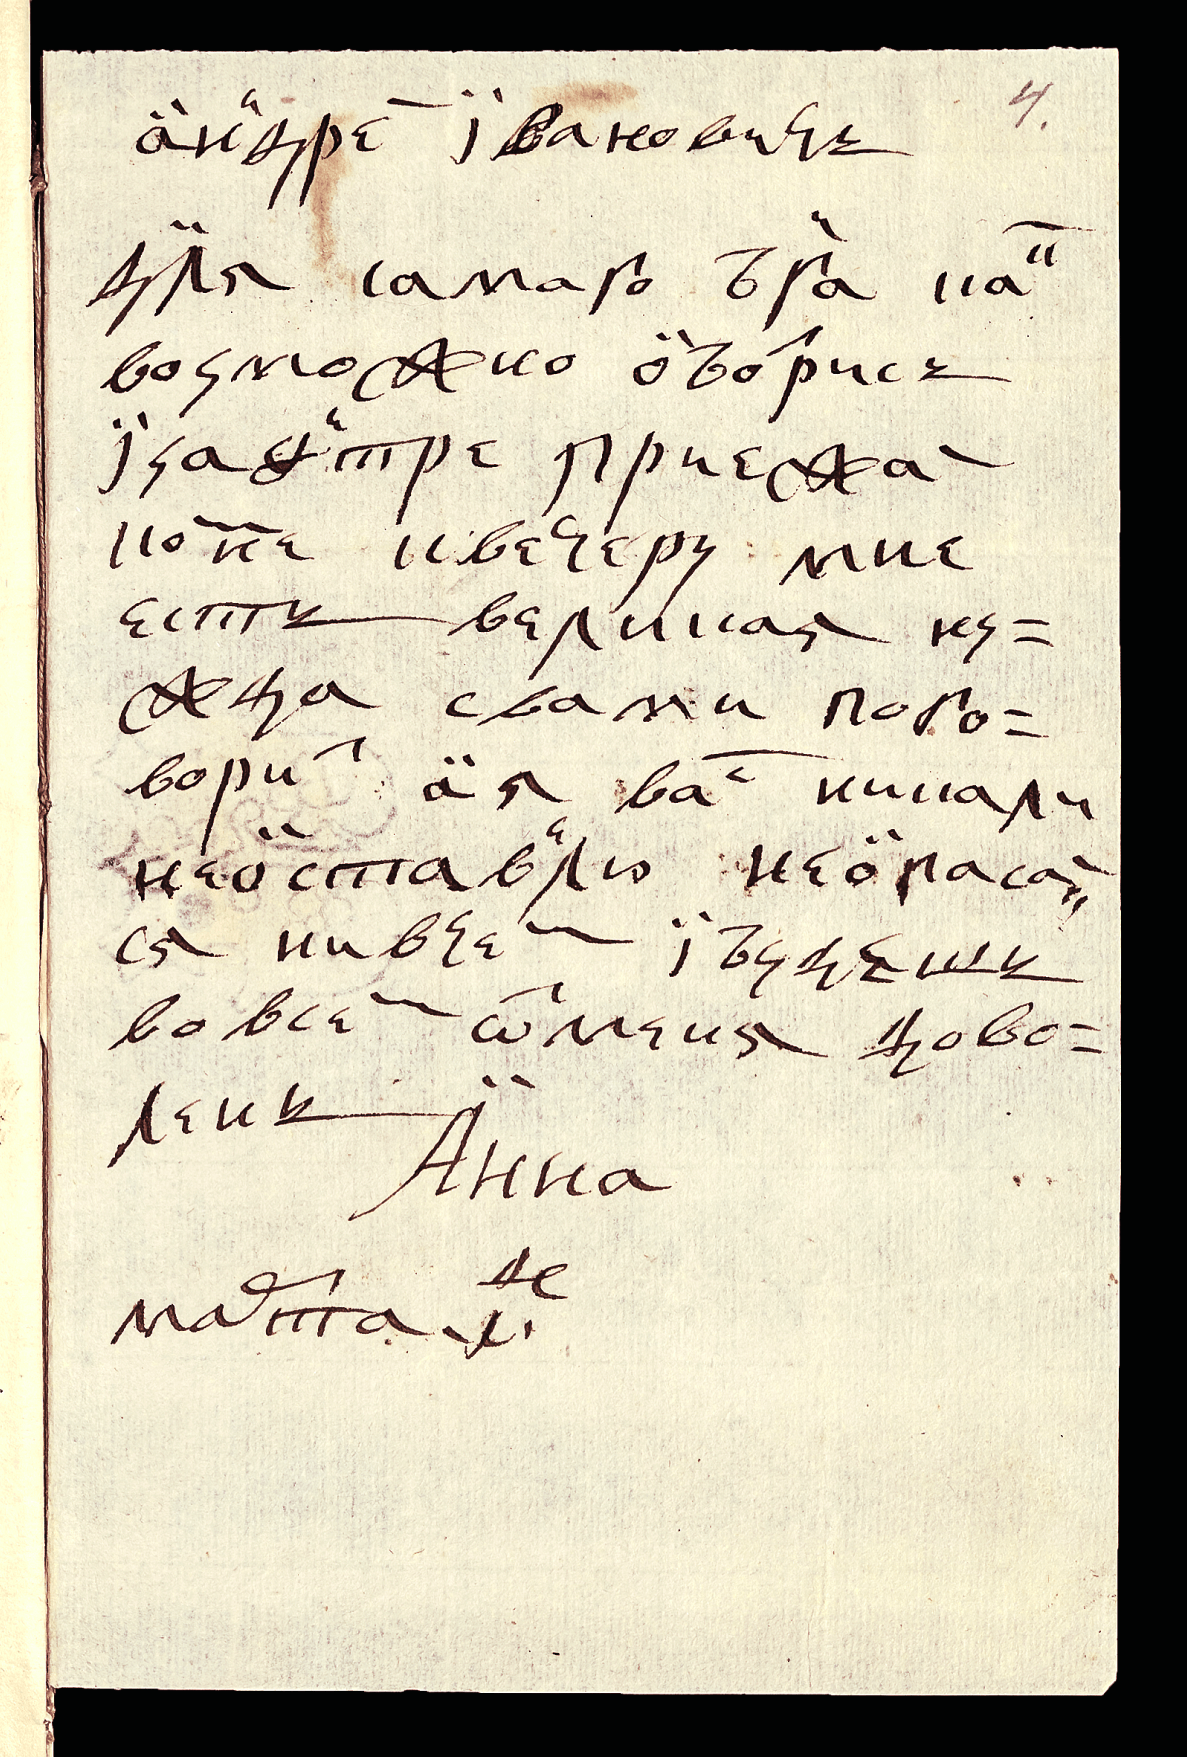 4.
андре іванович
для самаго бга как
возможно оберись
і завтре приежа
ко мне к вечеру мне
есть великая ну=
жда с вами пого=
ворит а я вас никали
не оставлю не опасай
ся ни в чем і будеш
во всем ѿ меня дово=
лень
Анна
марта